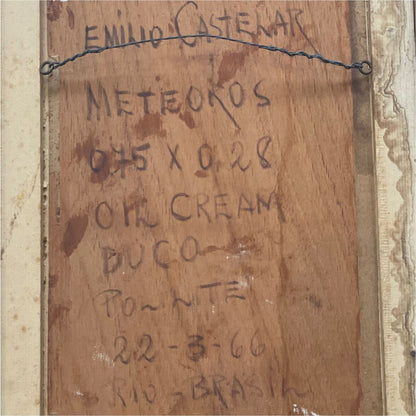 EMILIO CASTELAR
METEOROS
075 X 0.28
OIL CREAM
DUCO
22-3-66
RIO-BRASIL